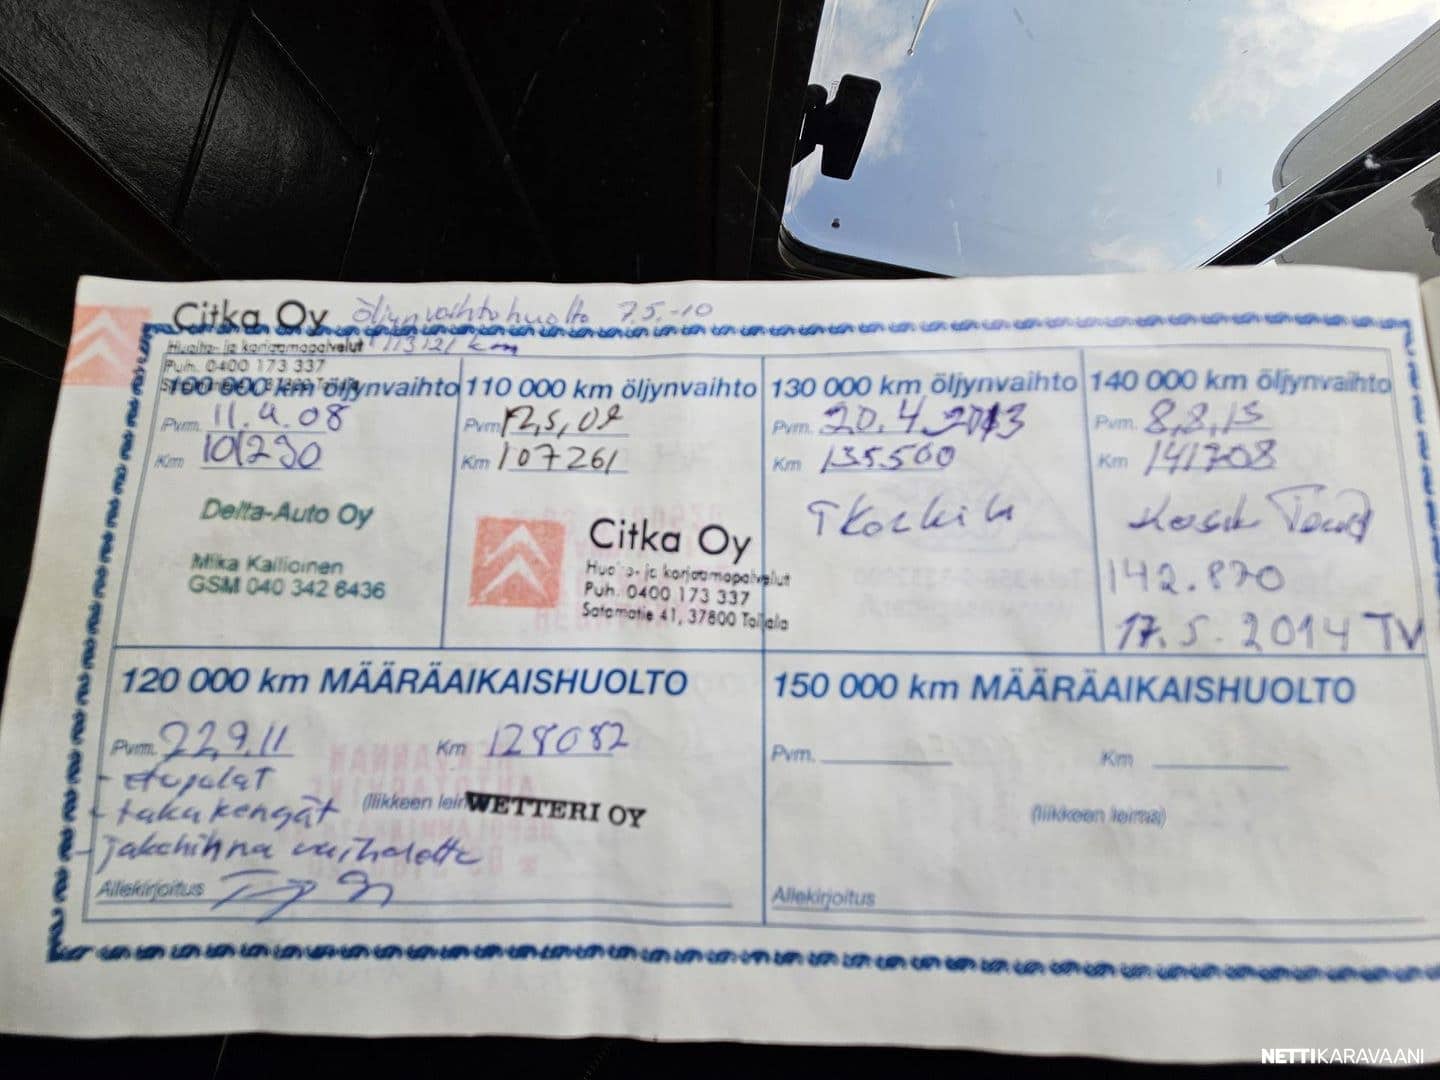 Citka Oy öljynvaihtohuolto 7.5.-10
Huolto- ja korjaamopalvelut 113121 km
Puh. 0400 173 337
100 000 km öljynvaihto
Pvm. 11.4.08
Km 101230
Delta-Auto Oy
Mika Kallioinen
GSM 040 342 6436
110 000 km öljynvaihto
Pvm 12,5,09
Km 107261
Citka Oy
Huolto- ja korjaamopalvelut
Puh. 0400 173 337
Satamatie 41, 37800 Toijala
130 000 km öljynvaihto
Pvm. 20.4.2013
Km 135.500
140 000 km öljynvaihto
Pvm. 8,8,15
Km 141708
142.870
17.5.2014 TV
120 000 km MÄÄRÄAIKAISHUOLTO
Pvm. 22,9,11 Km 128082
- etupalat
- takakengät (liikkeen WETTERI OY
- jakohihna vaihdettu
Allekirjoitus
150 000 km MÄÄRÄAIKAISHUOLTO
Pvm. Km
(liikkeen leima)
Allekirjoitus
NETTIKARAVAANI